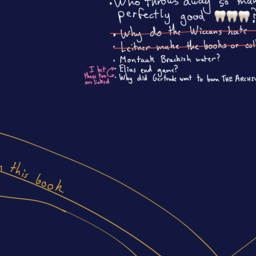 • Who throws away so man
perfectly good 🦷🦷🦷🦷?
• Why do the Wiccans hate
• Leitner make the books or col
• Montauk Brackish water?
• Elias end game?
• Why did Gertrude want to burn THE ARCHIV
I bet
these two
are linked
n this book